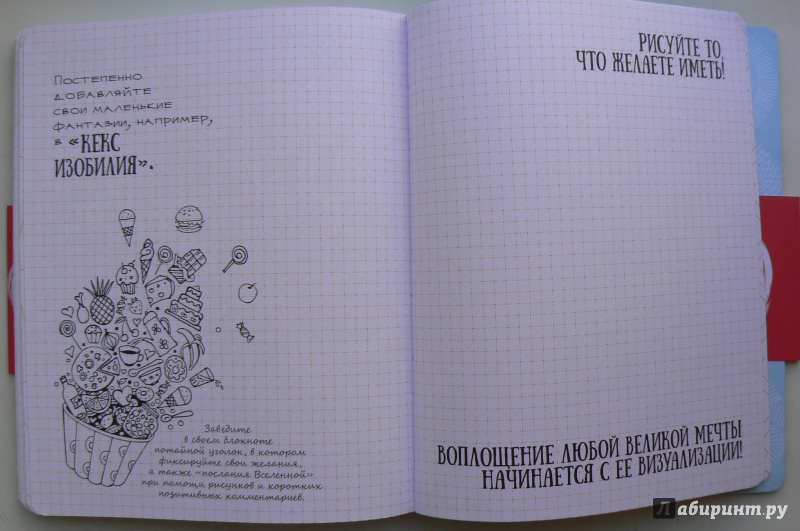 Постепенно
добавляйте
свои маленькие
фантазии, например,
в «КЕКС
ИЗОБИЛИЯ».
Заведите
в своем блокноте
потайной уголок, в котором
фиксируйте свои желания,
а также «послания Вселенной»
при помощи рисунков и коротких
позитивных комментариев.
РИСУЙТЕ ТО,
ЧТО ЖЕЛАЕТЕ ИМЕТЬ!
ВОПЛОЩЕНИЕ ЛЮБОЙ ВЕЛИКОЙ МЕЧТЫ
НАЧИНАЕТСЯ С ЕЕ ВИЗУАЛИЗАЦИИ!
Лабиринт.ру